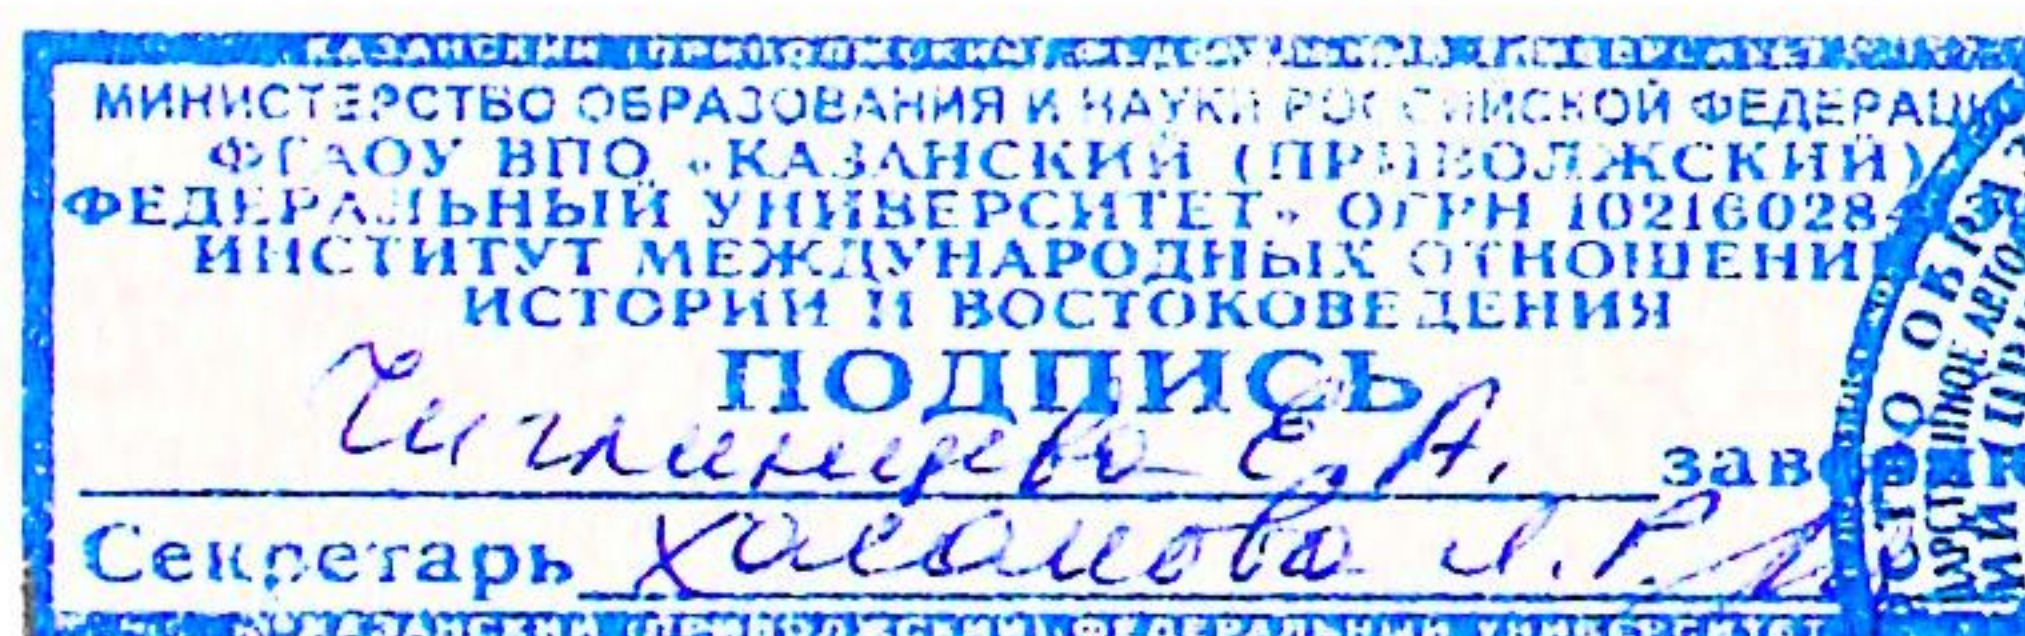 КАЗАНСКИЙ (ПРИВОЛЖСКИЙ) ФЕДЕРАЛЬНЫЙ УНИВЕРСИТЕТ
МИНИСТЕРСТВО ОБРАЗОВАНИЯ И НАУКИ РОССИЙСКОЙ ФЕДЕРАЦИ
ФГАОУ ВПО «КАЗАНСКИЙ (ПРИВОЛЖСКИЙ)
ФЕДЕРАЛЬНЫЙ УНИВЕРСИТЕТ» ОГРН 102160284
ИНСТИТУТ МЕЖДУНАРОДНЫХ ОТНОШЕНИ
ИСТОРИИ И ВОСТОКОВЕДЕНИЯ
ПОДПИСЬ
Чиглинцева Е.А. заверяю
Секретарь Хасанова Л.Р.
КАЗАНСКИЙ (ПРИВОЛЖСКИЙ) ФЕДЕРАЛЬНЫЙ УНИВЕРСИТЕТ